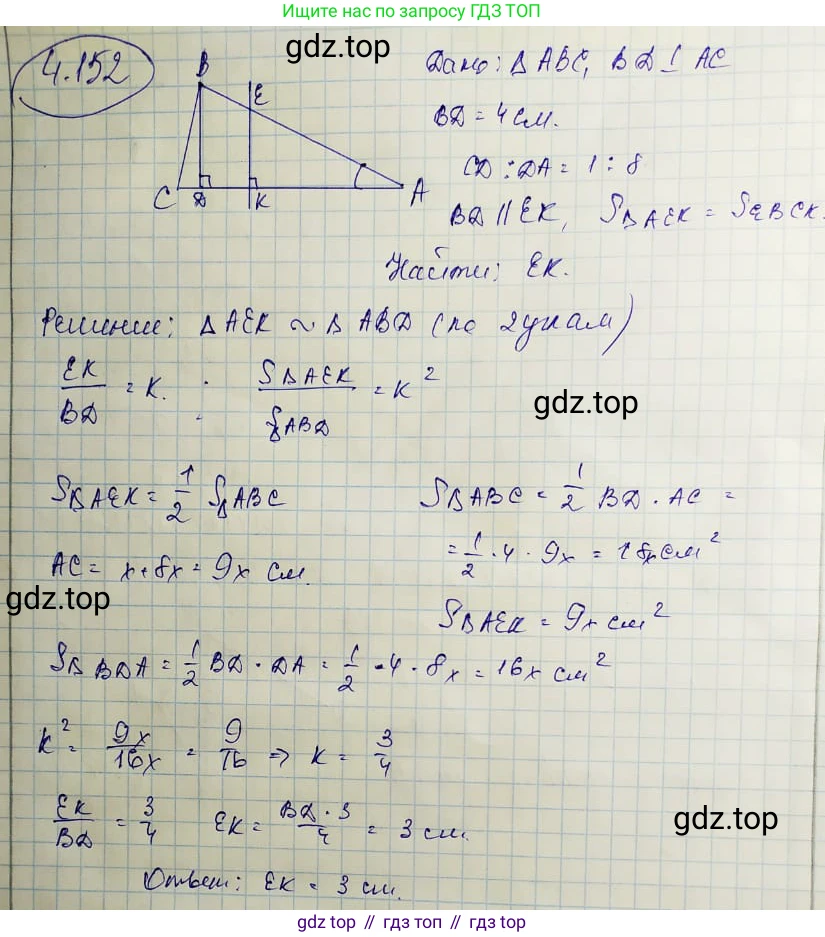 Ищите нас по запросу ГДЗ ТОП
gdz.top
4.152
B
E
C
D
K
A
Дано: Δ ABC, BD ⊥ AC
BD = 4 см.
CD : DA = 1 : 8
BD || EK, SΔAEK = SEBCK.
Найти: EK.
Решение: Δ AEK ~ Δ ABD (по 2 углам)
EK/BD = K. : SΔAEK/SΔABD = K²
gdz.top
SΔAEK = 1/2 SΔABC
SΔABC = 1/2 BD · AC =
= 1/2 · 4 · 9x = 18x см²
AC = x + 8x = 9x см.
gdz.top
SΔAEK = 9x см²
SΔBDA = 1/2 BD · DA = 1/2 · 4 · 8x = 16x см²
K² = 9x/16x = 9/16 ⇒ K = 3/4
EK/BD = 3/4 EK = BD · 3/4 = 3 см.
gdz.top
Ответ: EK = 3 см.
gdz.top // гдз топ // gdz top // гдз топ